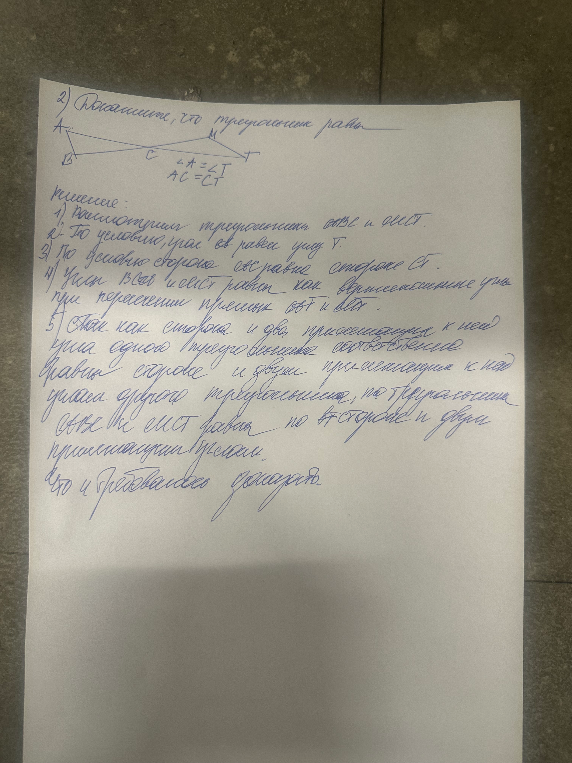 2) Докажите, что треугольники равны
A
M
B
C
T
∠A = ∠T
AC = CT
Решение:
1) Рассмотрим треугольники ABC и MCT.
2) По условию, угол A равен углу T
3) По условию сторона AC равна стороне CT.
4) Угол BCA и MCT равны как вертикальные углы
при пересечении прямых AT и
5) Так как сторона и два прилежащих к ней
угла одного треугольника соответственно
равны стороне и двум прилежащим к ней
углам другого треугольника, то треугольники
ABC и MCT равны по стороне и двум
прилежащим углам.
Что и требовалось доказать